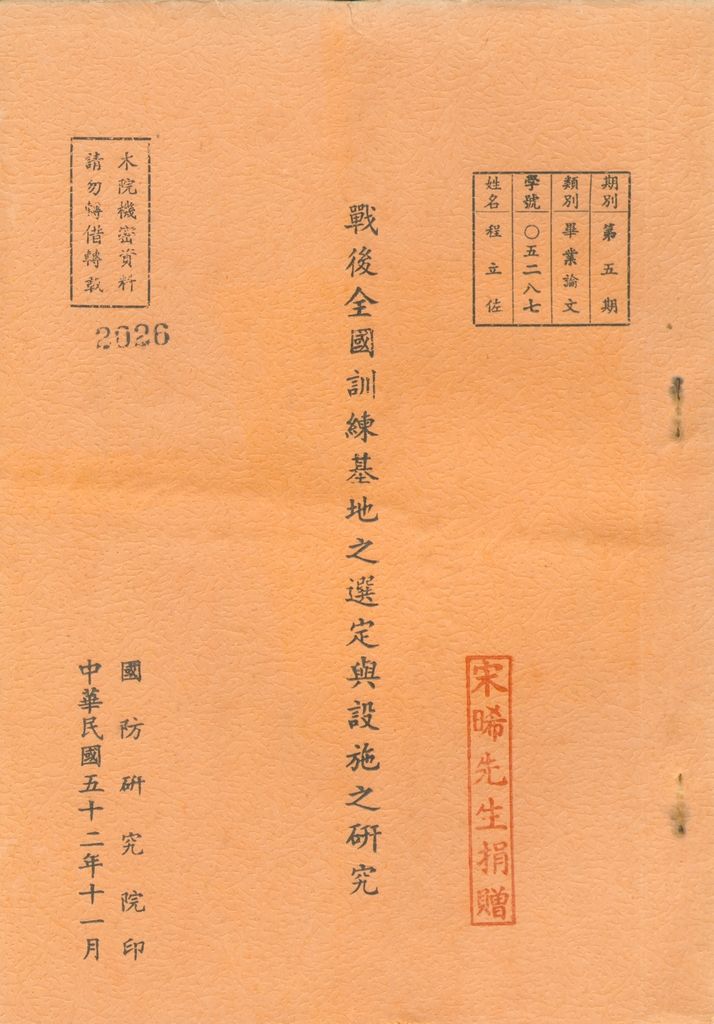 期別 第五期
類別 畢業論文
學號 〇五二八七
姓名 程立佐
戰後全國訓練基地之選定與設施之研究
本院機密資料
請勿轉借轉載
2026
宋晞先生捐贈
國防研究院印
中華民國五十二年十一月